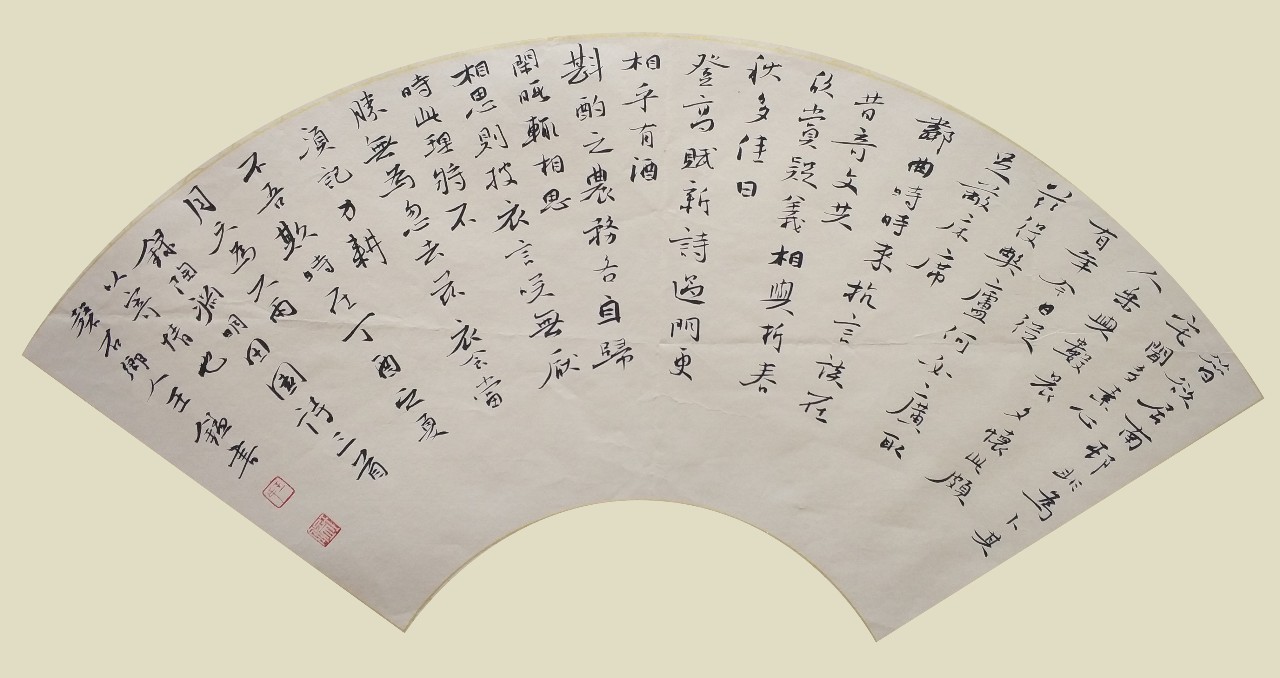 昔欲居南邨非為卜其
宅聞多素心
人樂與數晨夕懷此頗
有年今日從
茲役弊廬何必廣取
足蔽床席
鄰曲時時來抗言談在
昔奇文共
欣賞疑義相與析春
秋多佳日
登高賦新詩過門更
相乎有酒
斟酌之農務各自歸
閑暇輒相思
相思則披衣言笑無厭
時此理將不
勝無為忽去茲衣食當
須記力耕
不吾欺時在丁酉之夏
月天為大雨
錄陶淵明田園詩三首
以寄情也
石鄉人王書